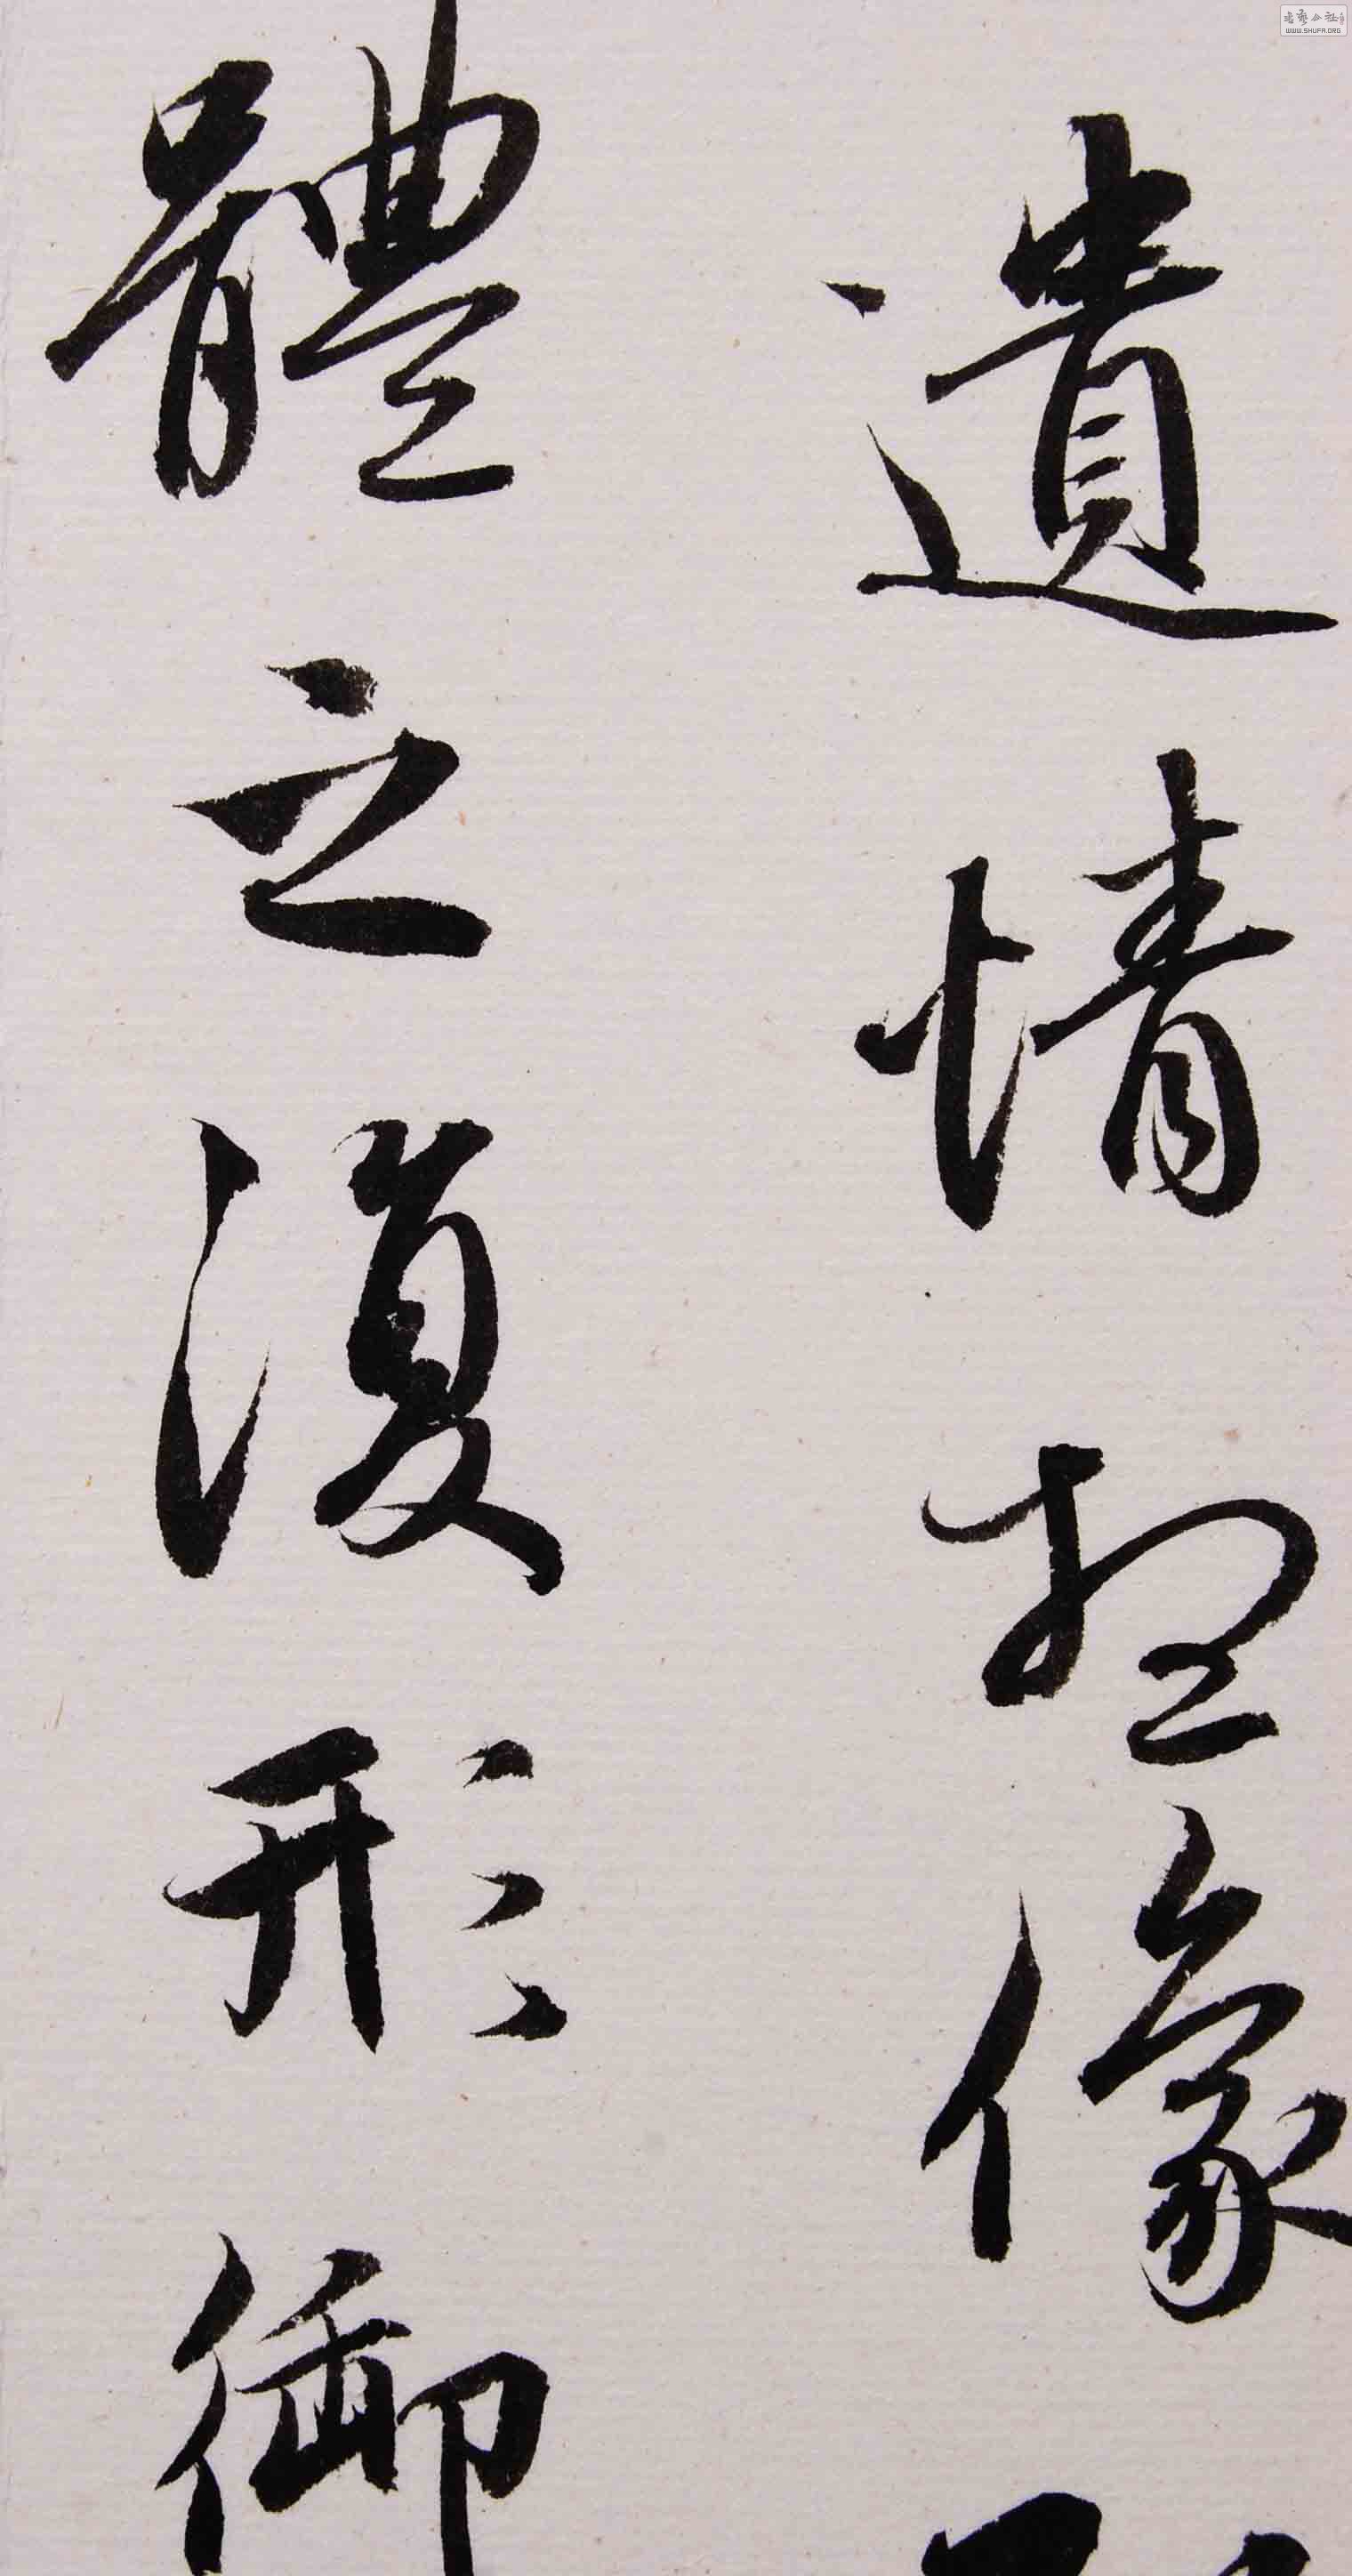 遺情想像
體之復形御
書藝公社
WWW.SHUFA.ORG